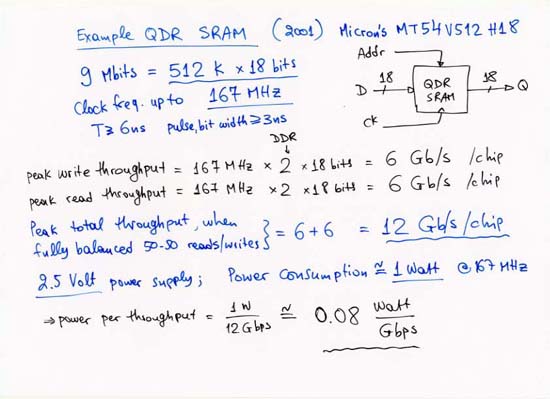 Example QDR SRAM (2001) Micron's MT54V512H18
9 Mbits = 512 K × 18 bits
Clock freq. up to 167 MHz
T ≥ 6ns pulse, bit width ≥ 3ns
Addr
D 18 QDR SRAM 18 Q
CK
DDR
peak write throughput = 167 MHz × 2 × 18 bits = 6 Gb/s /chip
peak read throughput = 167 MHz × 2 × 18 bits = 6 Gb/s /chip
Peak total throughput, when
fully balanced 50-50 reads/writes } = 6+6 = 12 Gb/s /chip
2.5 Volt power supply; Power consumption ≅ 1 Watt @ 167 MHz
⇒ power per throughput = 1 W / 12 Gbps ≅ 0.08 Watt / Gbps